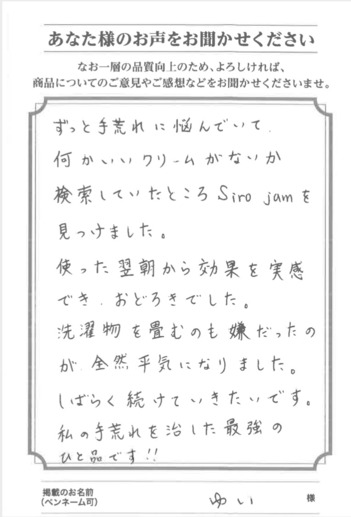 あなた様のお声をお聞かせください
なお一層の品質向上のため、よろしければ、
商品についてのご意見やご感想などをお聞かせくださいませ。
ずっと手荒れに悩んでいて、
何かいいクリームがないか
検索していたところSiro jamを
見つけました。
使った翌朝から効果を実感
でき、おどろきでした。
洗濯物を畳むのも嫌だったの
が、全然平気になりました。
しばらく続けていきたいです。
私の手荒れを治した最強の
ひと品です!!
掲載のお名前
(ペンネーム可)
ゆい 様